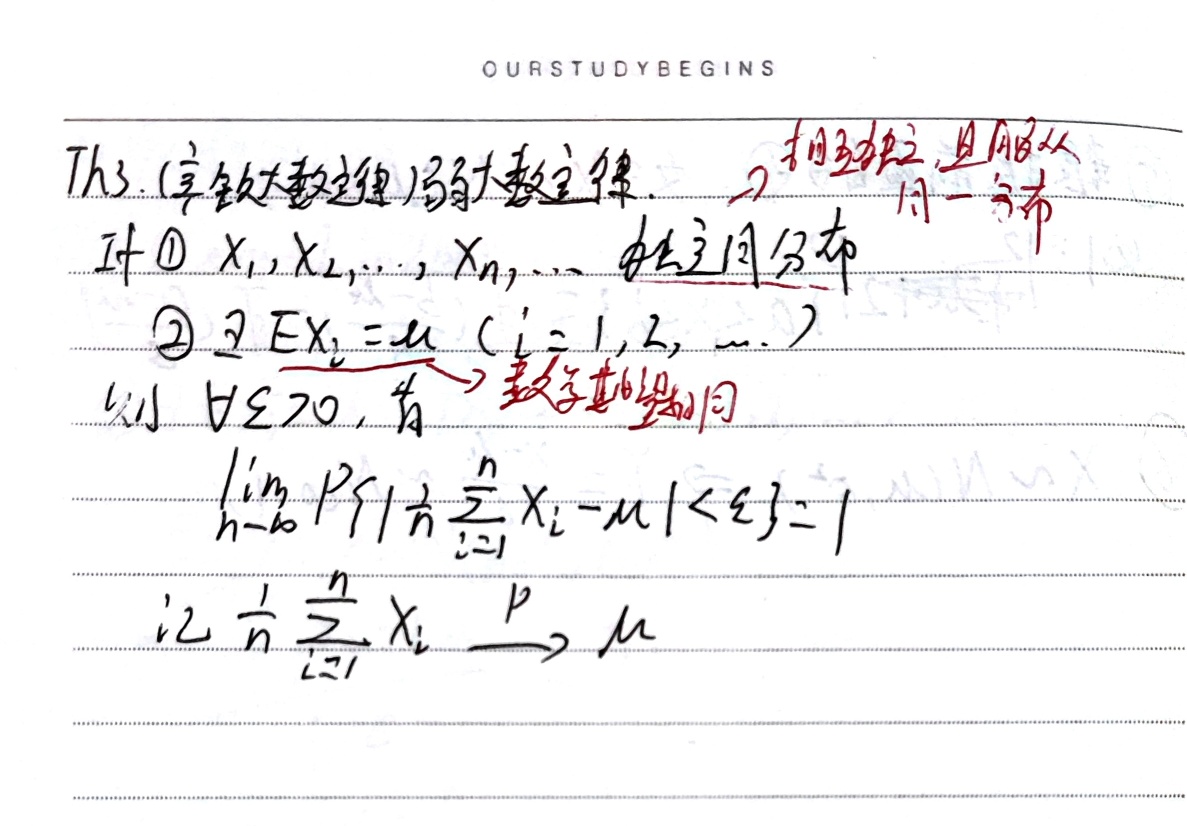 OURSTUDYBEGINS
Th3. (辛钦大数定律)弱大数定律.
→ 相互独立, 且服从
同一分布
若① X₁, X₂, …, Xₙ, … 独立同分布
② ∃ EXᵢ = μ (i = 1, 2, ….)
→ 数学期望相同
则 ∀ε>0, 有
lim n→∞ P{|1/n ∑ᵢ₌₁ⁿ Xᵢ − μ| < ε} = 1
记 1/n ∑ᵢ₌₁ⁿ Xᵢ —P→ μ